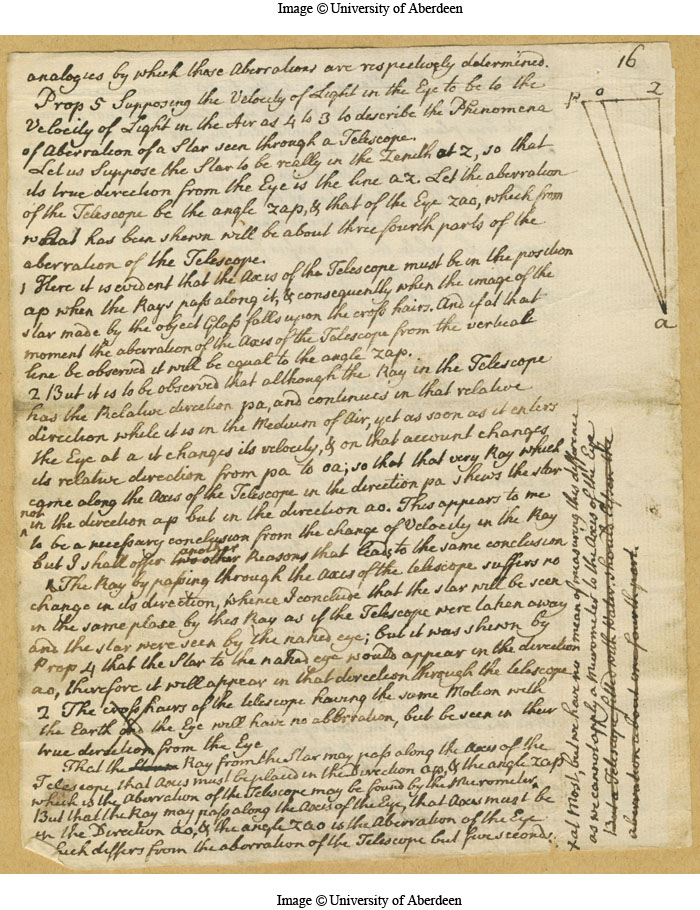 Image © University of Aberdeen
16
analogies by which those Aberrations are respectively determined.
Prop 5 Supposing the Velocity of Light in the Eye to be to the
Velocity of Light in the Air as 4 to 3 to describe the Phenomena
of Aberration of a Star seen through a Telescope.
Let us Suppose the Star to be really in the Zenith at z, so that
its true direction from the Eye is the line az. Let the aberration
of the Telescope be the angle zap, & that of the Eye zao, which from
what has been shewn will be about three fourth parts of the
aberration of the Telescope.
1 Here it is evident that the Axis of the Telescope must be in the position
ap when the Rays pass along it, & consequently when the image of the
star made by the object Glass falls upon the cross hairs. And if at that
moment the aberration of the Axis of the Telescope from the verticall
line be observed it will be equal to the angle zap.
2 But it is to be observed that although the Ray in the Telescope
has the Relative direction pa, and continues in that relative
direction while it is in the Medium of Air, yet as soon as it enters
the Eye at a it changes its velocity, & on that account changes
its relative direction from pa to oa; so that that very Ray which
came along the Axis of the Telescope in the direction pa shews the star
not in the direction ap but in the direction ao. This appears to me
to be a necessary conclusion from the change of Velocity in the Ray
but I shall offer two other another Reasons that leads to the same conclusion
The Ray by passing through the Axis of the telescope suffers no
change in its direction, whence I conclude that the star will be seen
in the same place by this Ray as if the Telescope were taken away
and the star were seen by the naked eye; but it was shewn by
Prop 4 that the Star to the naked eye would appear in the direction
ao, therefore it will appear in that direction through the telescope
2 The cross hairs of the telescope having the same Motion with
the Earth and the Eye will have no abbration, but be seen in their
true direction from the Eye
That the Ray from the Star may pass along the Axis of the
Telescope, that Axis must be placed in the Direction ap, & the angle zap
which is the Aberration of the Telescope may be found by the Micrometer
But that the Ray may pass along the Axis of the Eye, that Axis must be
in the Direction ao, & the angle zao is the Aberration of the Eye
which differs from the aborration of the Telescope but five seconds
p o z
a
at Most, but we have no mean of measuring this difference
as we cannot apply a micrometer to the Axis of the Eye
But a Telescope filled with Water should alter the
aberration about one fourth part.
Image © University of Aberdeen